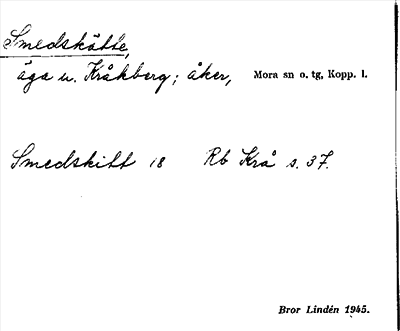 Smedskötte,
äga u. Kråkberg; åker, Mora sn o. tg, Kopp. l.
Smedskitt 18 Rb Krå s. 37.
Bror Lindén 1945.